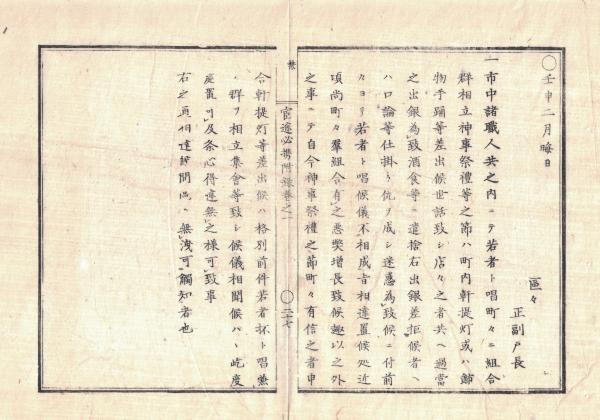 〇壬申二月晦日
區々
正副戸長
一市中諸職人共之内ニテ若者ト唱町々ニ組合
群相立神事祭禮等之節ハ町内軒提灯或ハ飾
物手踊等差出候世話致シ店々之者共ヘ過當
之出銀為致酒食等ニ遣捨右出銀差拒候者ヘ
ハ口論等仕掛ケ仇ヲ成シ迷惑為致候ニ付前
々ヨリ若者ト唱候儀不相成旨相達置候処近
項尚町々羣組合有之悪獘増長致候趣以之外
之事ニテ自今神事祭禮之節町々有信之者申
合軒提灯等差出候ハ格別前件若者抔ト唱
群ヲ相立集會等致シ候儀相聞候ハヽ屹度
處置可及条心得違無之様可致事
右之通相達
無洩可觸知者也
官遵必携附録巻之一
〇二十七